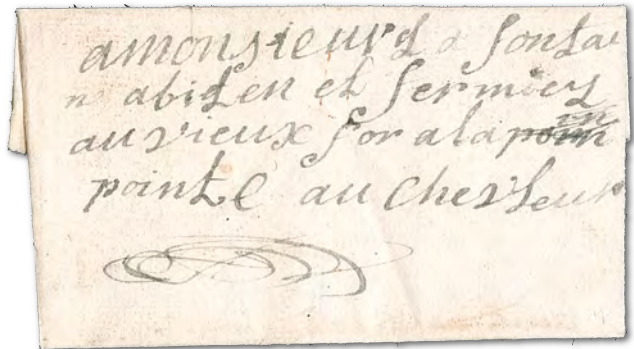 amonsieur d fontai
n abiten et fermiey
au vieux for a la poin
pointe au chevleur